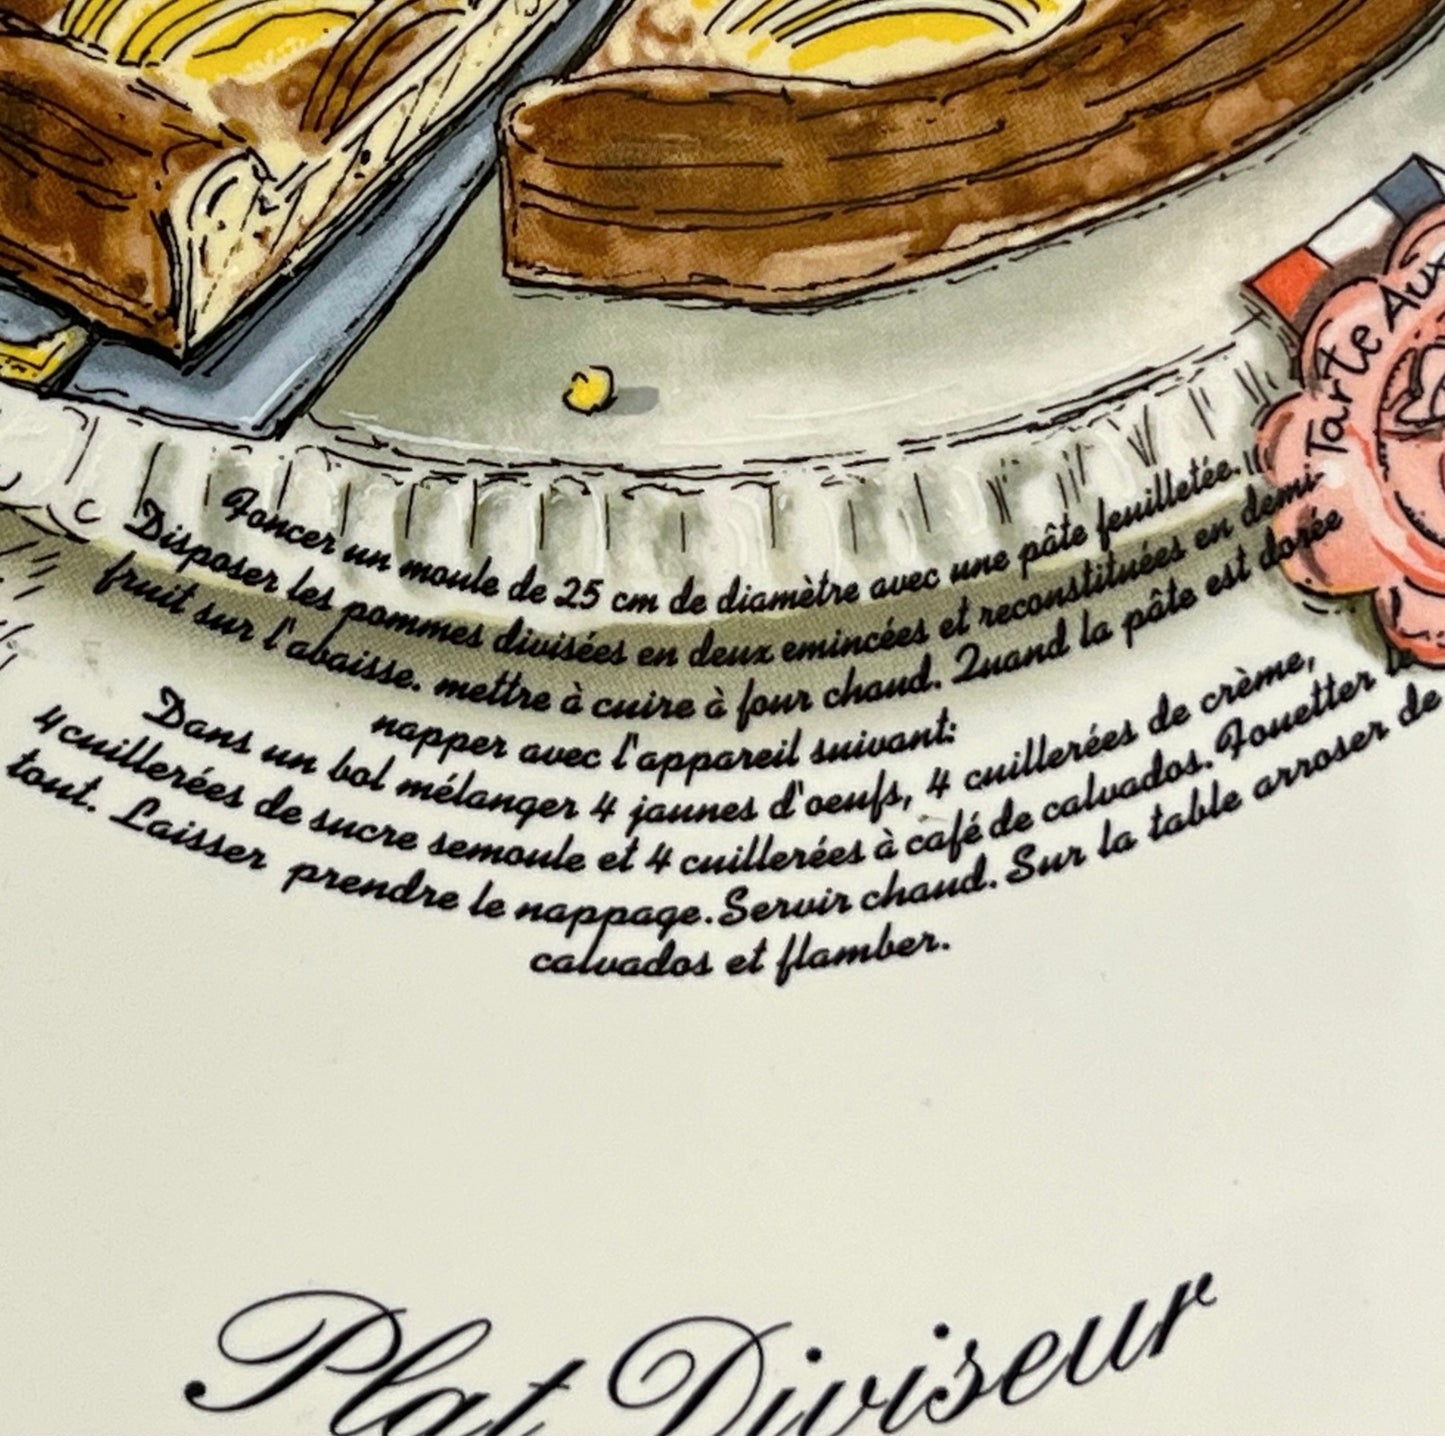 Tarte Aux
Foncer un moule de 25 cm de diamètre avec une pâte feuilletée.
Disposer les pommes divisées en deux emincées et reconstituées en demi-
fruit sur l'abaisse. mettre à cuire à four chaud. Quand la pâte est dorée
napper avec l'appareil suivant:
Dans un bol mélanger 4 jaunes d'oeufs, 4 cuillerées de crème,
4 cuillerées de sucre semoule et 4 cuillerées à café de calvados. Fouetter le
tout. Laisser prendre le nappage. Servir chaud. Sur la table arroser de
calvados et flamber.
Plat Diviseur